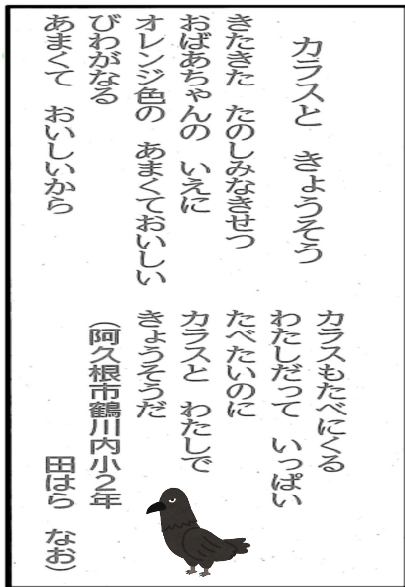 カラスと　きょうそう
きたきた　たのしみなきせつ
おばあちゃんの　いえに
オレンジ色の　あまくておいしい
びわがなる
あまくて　おいしいから
カラスもたべにくる
わたしだって　いっぱい
たべたいのに
カラスと　わたしで
きょうそうだ
（阿久根市鶴川内小２年
田はら　なお）